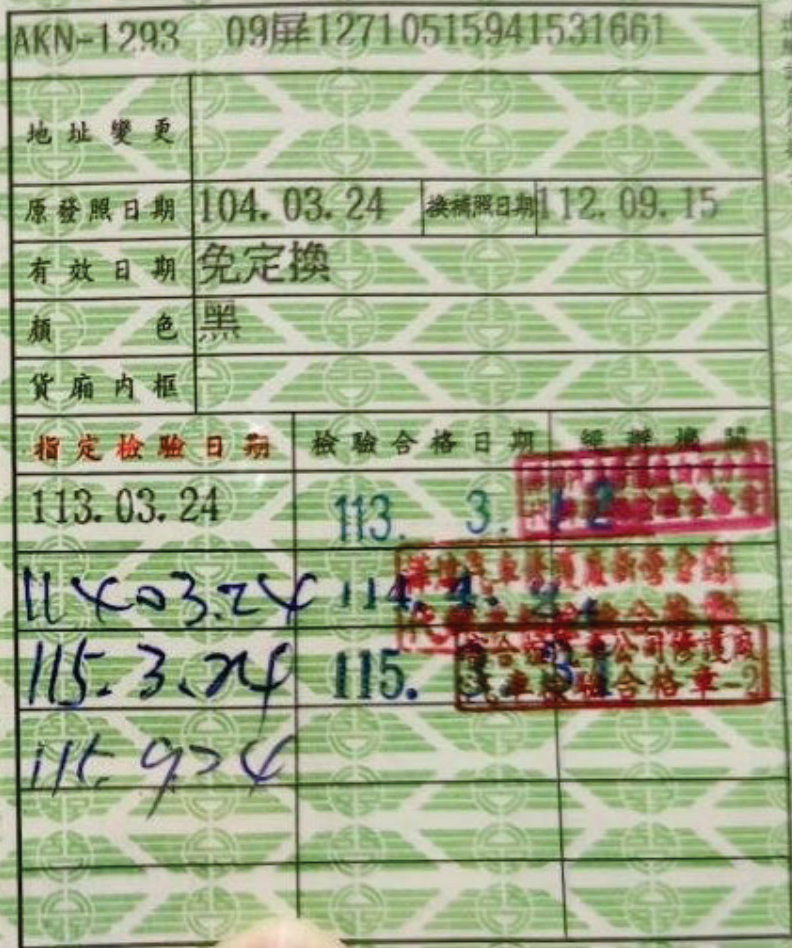 AKN-1293 09屏127105159415​31661
地址變更
原發照日期 104.03.24 換補照日期 112.09.15
有效日期 免定換
顏色 黑
貨廂內框
指定檢驗日期 檢驗合格日期 經辦機關
113.03.24 113. 3. 12
114.03.24 114. 4.
115.3.24 115. 3. 31
汽車檢驗合格章-2
115.9.24